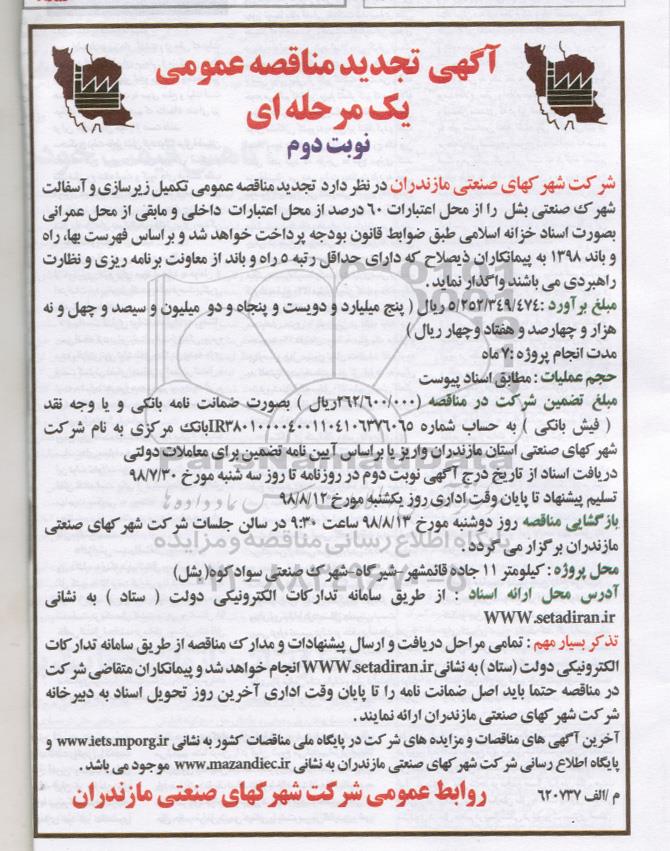 آگهی تجدید مناقصه عمومی
یک مرحله ای
نوبت دوم
شرکت شهرکهای صنعتی مازندران در نظر دارد تجدید مناقصه عمومی تکمیل زیرسازی و آسفالت
شهرک صنعتی بشل را از محل اعتبارات ۶۰ درصد از محل اعتبارات داخلی و مابقی از محل عمرانی
بصورت اسناد خزانه اسلامی طبق ضوابط قانون بودجه پرداخت خواهد شد و براساس فهرست بها، راه
و باند ۱۳۹۸ به پیمانکاران ذیصلاح که دارای حداقل رتبه ۵ راه و باند از معاونت برنامه ریزی و نظارت
راهبردی می باشند واگذار نماید .
مبلغ برآورد :۵/۲۵۲/۳۴۹/۴۷۴ ریال ( پنج میلیارد و دویست و پنجاه و دو میلیون و سیصد و چهل و نه
هزار و چهارصد و هفتاد وچهار ریال )
مدت انجام پروژه :۷ ماه
حجم عملیات : مطابق اسناد پیوست
مبلغ تضمین شرکت در مناقصه (۲۶۲/۶۰۰/۰۰۰ریال ) بصورت ضمانت نامه بانکی و یا وجه نقد
( فیش بانکی ) به حساب شماره IR۳۸۰۱۰۰۰۰۴۰۰۱۱۰۴۱۰۶۳۷۶۰۶۵بانک مرکزی به نام شرکت
شهرکهای صنعتی استان مازندران واریز یا براساس آیین نامه تضمین برای معاملات دولتی
دریافت اسناد از تاریخ درج آگهی نوبت دوم در روزنامه تا روز سه شنبه مورخ ۹۸/۷/۳۰
تسلیم پیشنهاد تا پایان وقت اداری روز یکشنبه مورخ ۹۸/۸/۱۲
بازگشایی مناقصه روز دوشنبه مورخ ۹۸/۸/۱۳ ساعت ۹:۳۰ در سالن جلسات شرکت شهرکهای صنعتی
مازندران برگزار می گردد .
محل پروژه : کیلومتر ۱۱ جاده قائمشهر-شیرگاه-شهرک صنعتی سوادکوه( بشل)
آدرس محل ارائه اسناد : از طریق سامانه تدارکات الکترونیکی دولت ( ستاد ) به نشانی
WWW.setadiran.ir
تذکر بسیار مهم : تمامی مراحل دریافت و ارسال پیشنهادات و مدارک مناقصه از طریق سامانه تدارکات
الکترونیکی دولت (ستاد ) به نشانی WWW.setadiran.ir انجام خواهد شد و پیمانکاران متقاضی شرکت
در مناقصه حتما باید اصل ضمانت نامه را تا پایان وقت اداری آخرین روز تحویل اسناد به دبیرخانه
شرکت شهرکهای صنعتی مازندران ارائه نمایند .
آخرین آگهی های مناقصات و مزایده های شرکت در پایگاه ملی مناقصات کشور به نشانی www.iets.mporg.ir و
پایگاه اطلاع رسانی شرکت شهرکهای صنعتی مازندران به نشانی www.mazandiec.ir موجود می باشد .
م /الف ۶۲۰۷۳۷
روابط عمومی شرکت شهرکهای صنعتی مازندران